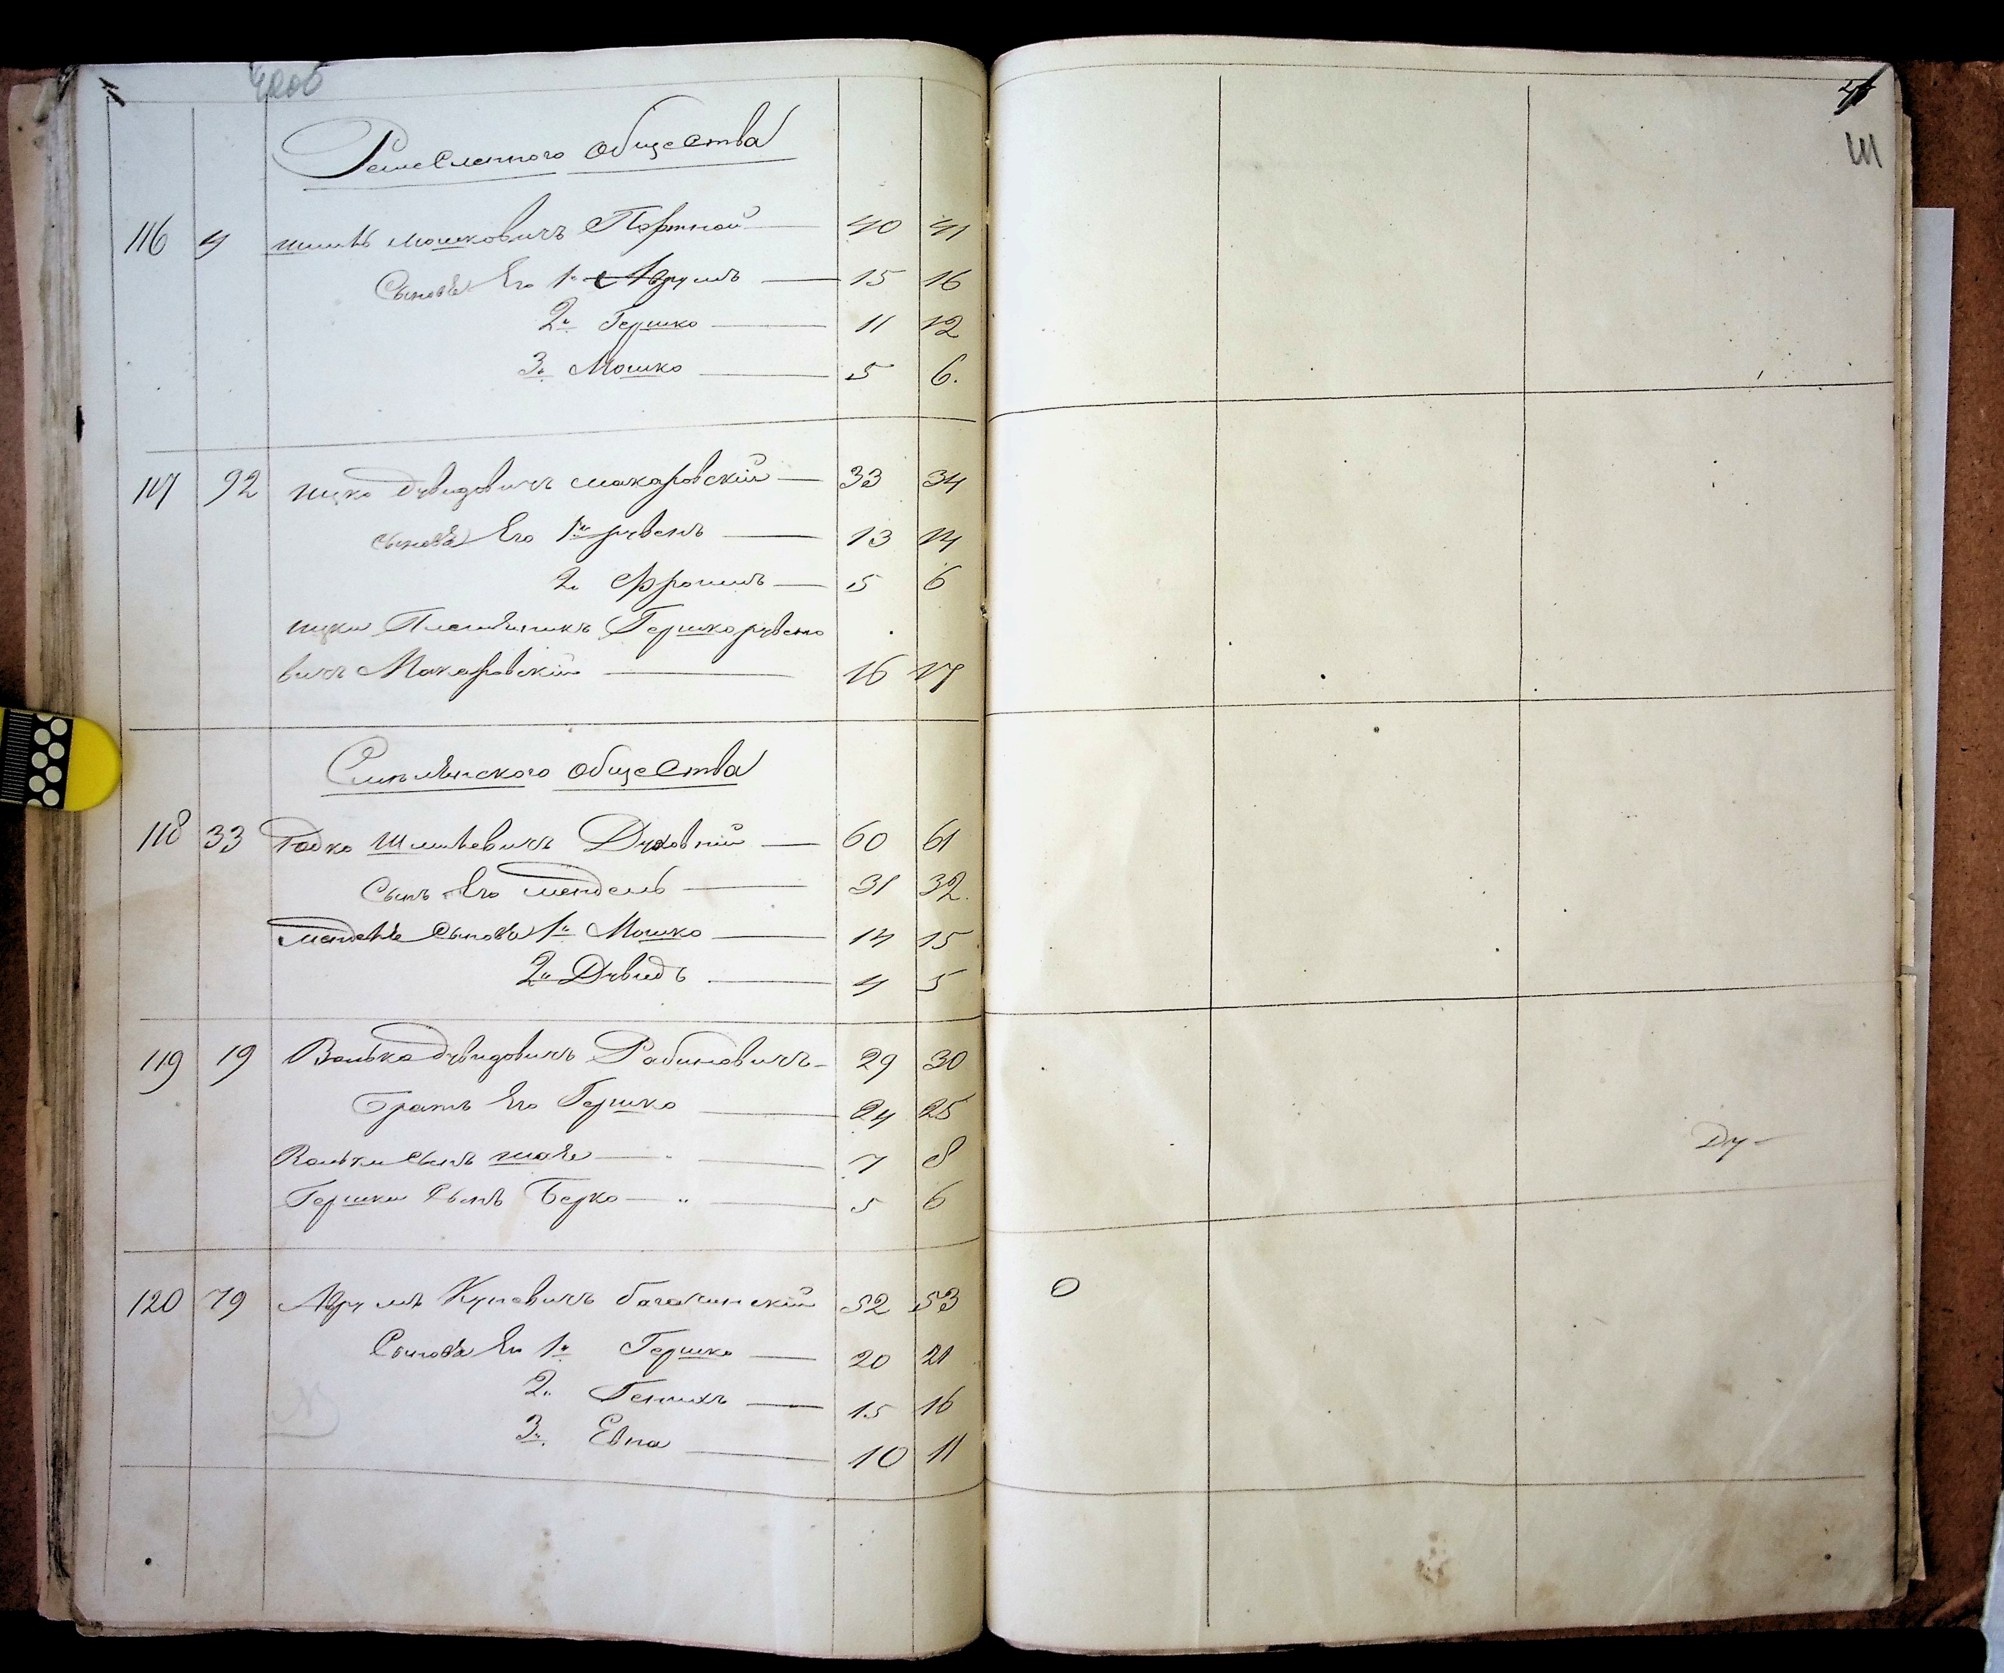 Ремесленного общества
116 4 Шмилъ Мошковичъ Портной 40 41
Сыновя Его 1й Аврумъ 15 16
2й Гершко 11 12
3й Мошко 5 6.
117 92 Ицко Дувидовичъ Макаровскій 33 34
Сыновя Его 1й Рувенъ 13 14
2й Фроимъ 5 6
Ицки Племяникъ Гершко Рувено
вичъ Макаровскій 16 17
Смилянского общества
118 33 Шмилевичъ Духовній 60 61
Сынъ Его Мендель 31 32.
Менделя Сыновя 1й Мошко 14 15
2й Дувидъ 4 5
119 19 Волько Дувидовичъ Рабиновичъ 29 30
Братъ Его Гершко 24 25
Вольки Сынъ Шая 7 8
Гершки Сынъ Берко 5 6
120 79 Аврумъ Куневичъ 52 53
Сыновя Его 1й Гершко 20 21
2й Генихъ 15 16
3й Евна 10 11
Ду